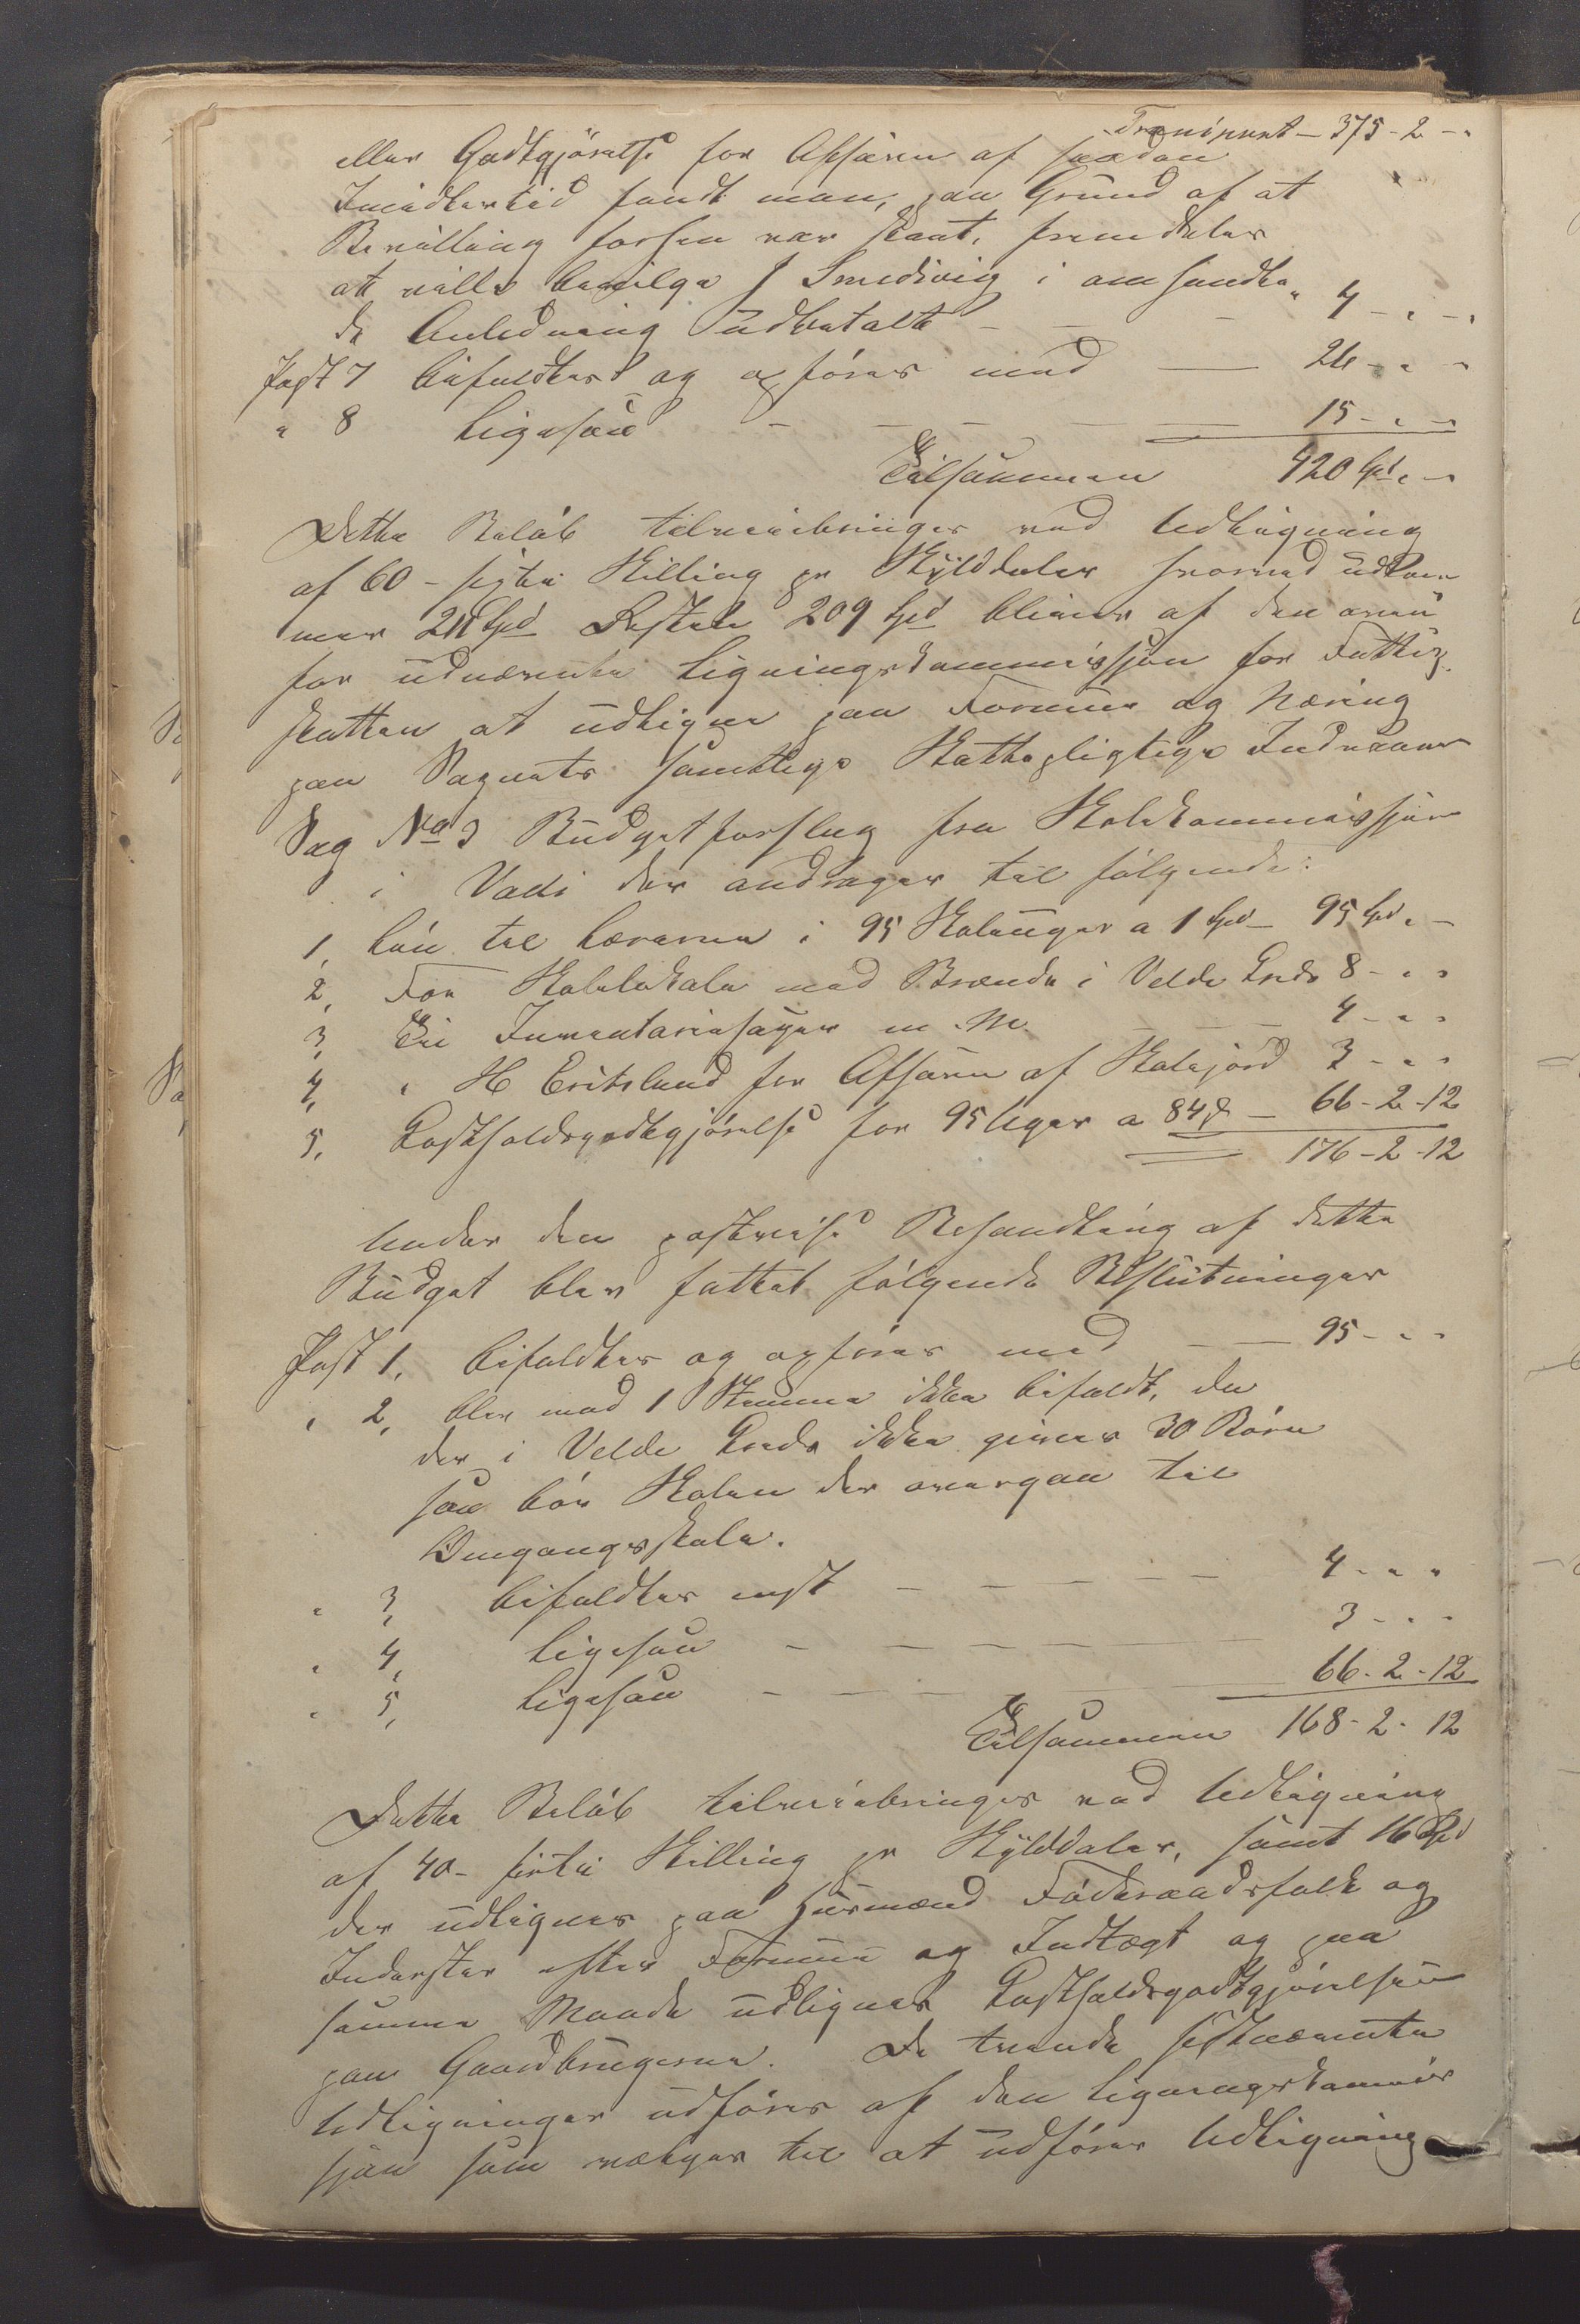 Transport – 375 - 2 - "
eller Godtgjörelse for Afsavn af saadan
Imidlertid fandt man, paa Grund af at
Bevilling forhen var skeet, fremdeles
at ville bevilge J Smedsvig i omhandle-
de Anledning udbetalt – – – 4 - " - "
Post 7 bifaldtes og opföres med — 26 - " - "
" 8 Ligesaa – – – – — 15 - " - "
Tilsammen 420 Spd " - "
Dette Belöb tilveiebringes ved Udligning
af 60 - sexti Skilling pr Skylddaler hvorved udkom
mer 211 Spd Resten 209 Spd bliver af den oven
for udnævnte Ligningskommissjon for Fattig-
skatten at udligne paa Formue og Næring
paa Sognets samtlige Skattepligtige Indvaanere
Sag No 3 Budgetforslag fra Skolekommissjon
i Vats der andrager til fölgende:
1, Lön til Lærerne i 95 Skoleuger a 1 Spd – 95 Spd " -
2, For Skolelokale med Brænde i Velde Kreds 8 - " "
3, Til Inventariesager m. M. – – – 4 - " "
4, " H Erikslund for Afsavn af Skolejord 3 - " "
5, Kostholdsgodtgjörelse for 95 Uger a 84 s – 66 - 2 - 12
176 - 2 - 12
Under den postvise Behandling af dette
Budget blev fattet fölgende Beslutninger
Post 1, bifaldtes og opföres med — 95 - " "
" 2, blev mod 1 Stemme ikke bifaldt, da
der i Velde Kreds ikke gives 30 Börn
saa bör Skolen der overgaa til
Omgangsskole.
" 3, bifaldtes enst – – – – – 4 - " "
" 4, Ligesaa – – – – – 3 - " "
" 5, Ligesaa – – – – 66 - 2 - 12
Tilsammen 168 - 2 - 12
Dette Belöb tilveiebringes ved Udligning
af 40 - firti Skilling pr Skylddaler, samt 16 Spd
der udlignes paa Husmænd Föderaadsfolk og
Inderster efter Formue og Indtægt og paa
samme Maade udlignes Kostholdsgodtgjörelsen
paa Gaardbrugerne. De tvende sistnævnte
Udligninger udföres af den Ligningskommis
sjon som vælges til at udföres Udligning